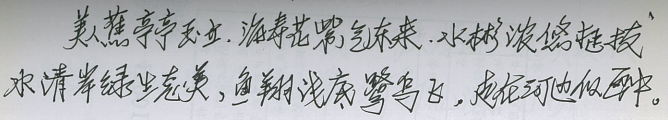 美人蕉亭亭玉立.海寿花紫气东来.水彬滚悠挺拔、
水清岸绿生态美,鱼翔浅底鹭鸟飞。走在河边似画中。